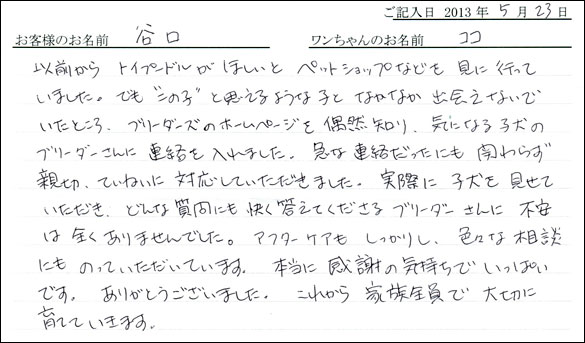 ご記入日 2013 年 5 月 23 日
お客様のお名前 谷口 ワンちゃんのお名前 ココ
以前から トイプードルが ほしいと ペットショップなどを 見に 行って
いました。でも "この子" と 思えるような 子と なかなか 出会えないで
いたところ、ブリーダーズの ホームページを 偶然 知り、気になる 子犬の
ブリーダーさんに 連絡を 入れました。急な 連絡だったにも 関わらず
親切、ていねいに 対応していただきました。実際に 子犬を 見せて
いただき、どんな 質問にも 快く 答えてくださる ブリーダーさんに 不安
は 全く ありませんでした。アフターケアも しっかりし、色々な 相談
にも のっていただいています。本当に 感謝の 気持ちで いっぱい
です。ありがとうございました。これから 家族全員で 大切に
育てていきます。